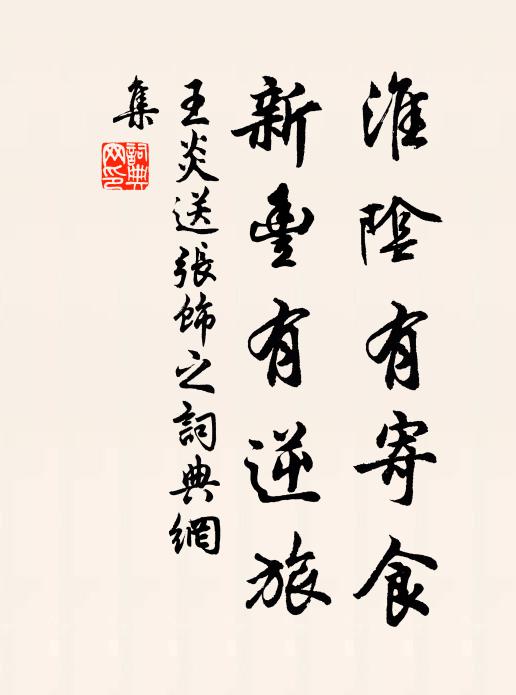 淮陰有寄食
新豐有逆旅
王炎送張飾之詞典網
集
詞典
网印